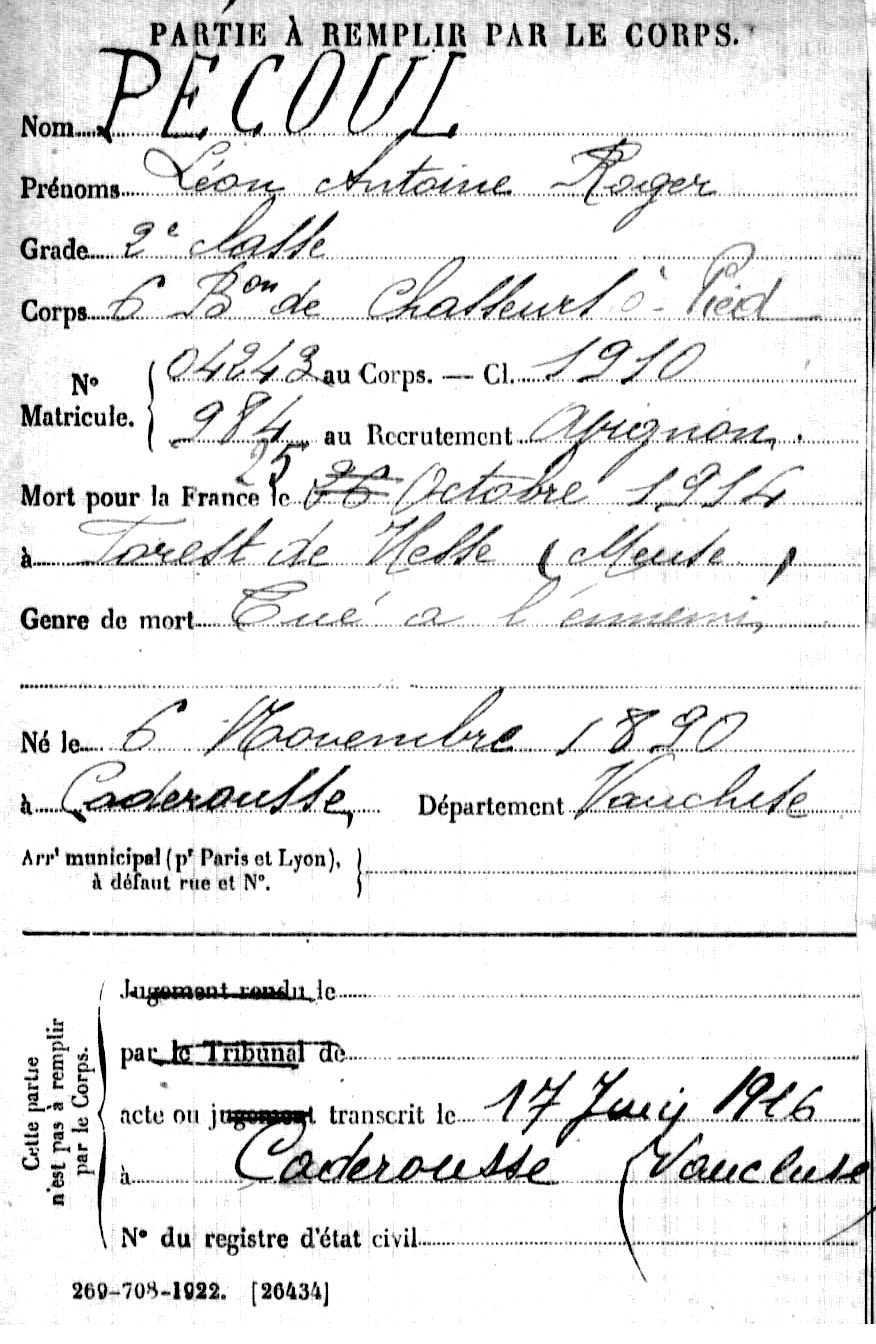 PARTIE À REMPLIR PAR LE CORPS.
Nom PECOUL
Prénoms Léon Antoine Roger
Grade 2e Classe
Corps 6 Bon de Chasseurs à Pied
N° Matricule. 04243 au Corps. — Cl. 1910
984 au Recrutement Avignon
25
Mort pour la France le 26 Octobre 1914
à Forest de Hesse (Meuse)
Genre de mort Tué a l'énnemi,
Né le 6 Novembre 1890
à Caderousse, Département Vaucluse
Arrt municipal (pr Paris et Lyon),
à défaut rue et N°.
Cette partie n'est pas à remplir par le Corps.
Jugement rendu le
par le Tribunal de
acte ou jugement transcrit le 17 Juin 1916
à Caderousse (Vaucluse
N° du registre d'état civil
269-708-1922. [26434]